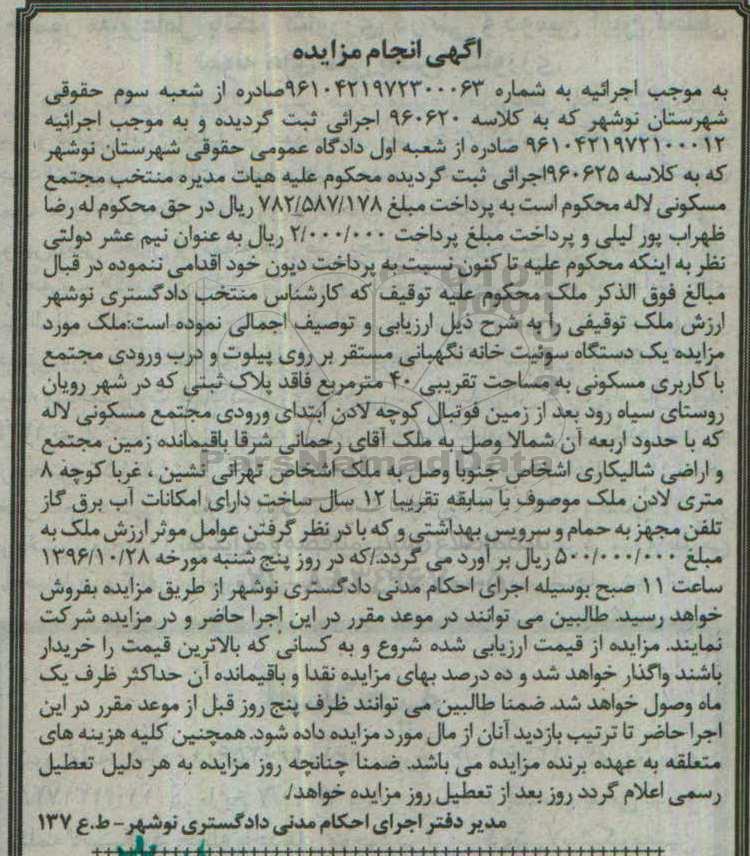 آگهی انجام مزایده
به موجب اجرائیه به شماره ۹۶۱۰۴۲۱۹۷۲۳۰۰۰۶۳صادره از شعبه سوم حقوقی
شهرستان نوشهر که به کلاسه ۹۶۰۶۲۰ اجرائی ثبت گردیده و به موجب اجرائیه
۹۶۱۰۴۲۱۹۷۲۱۰۰۰۱۲ صادره از شعبه اول دادگاه عمومی حقوقی شهرستان نوشهر
که به کلاسه ۹۶۰۶۲۵اجرائی ثبت گردیده محکوم علیه هیات مدیره منتخب مجتمع
مسکونی لاله محکوم است به پرداخت مبلغ ۷۸۲/۵۸۷/۱۷۸ ریال در حق محکوم له رضا
ظهراب پور لیلی و پرداخت مبلغ پرداخت ۲/۰۰۰/۰۰۰ ریال به عنوان نیم عشر دولتی
نظر به اینکه محکوم علیه تا کنون نسبت به پرداخت دیون خود اقدامی ننموده در قبال
مبالغ فوق الذکر ملک محکوم علیه توقیف که کارشناس منتخب دادگستری نوشهر
ارزش ملک توقیفی را به شرح ذیل ارزیابی و توصیف اجمالی نموده است:ملک مورد
مزایده یک دستگاه سوئیت خانه نگهبانی مستقر بر روی پیلوت و درب ورودی مجتمع
با کاربری مسکونی به مساحت تقریبی ۴۰ مترمربع فاقد پلاک ثبتی که در شهر رویان
روستای سیاه رود بعد از زمین فوتبال کوچه لادن ابتدای ورودی مجتمع مسکونی لاله
که با حدود اربعه آن شمالا وصل به ملک آقای رحمانی شرقا باقیمانده زمین مجتمع
و اراضی شالیکاری اشخاص جنوبا وصل به ملک اشخاص تهرانی نشین ، غربا کوچه ۸
متری لادن ملک موصوف با سابقه تقریبا ۱۲ سال ساخت دارای امکانات آب برق گاز
تلفن مجهز به حمام و سرویس بهداشتی و که با در نظر گرفتن عوامل موثر ارزش ملک به
مبلغ ۵۰۰/۰۰۰/۰۰۰ ریال بر آورد می گردد./که در روز پنج شنبه مورخه ۱۳۹۶/۱۰/۲۸
ساعت ۱۱ صبح بوسیله اجرای احکام مدنی دادگستری نوشهر از طریق مزایده بفروش
خواهد رسید. طالبین می توانند در موعد مقرر در این اجرا حاضر و در مزایده شرکت
نمایند. مزایده از قیمت ارزیابی شده شروع و به کسانی که بالاترین قیمت را خریدار
باشند واگذار خواهد شد و ده درصد بهای مزایده نقدا و باقیمانده آن حداکثر ظرف یک
ماه وصول خواهد شد. ضمنا طالبین می توانند ظرف پنج روز قبل از موعد مقرر در این
اجرا حاضر تا ترتیب بازدید آنان از مال مورد مزایده داده شود. همچنین کلیه هزینه های
متعلقه به عهده برنده مزایده می باشد. ضمنا چنانچه روز مزایده به هر دلیل تعطیل
رسمی اعلام گردد روز بعد از تعطیل روز مزایده خواهد/.
مدیر دفتر اجرای احکام مدنی دادگستری نوشهر- ط.ع ۱۳۷
ParsNamadData